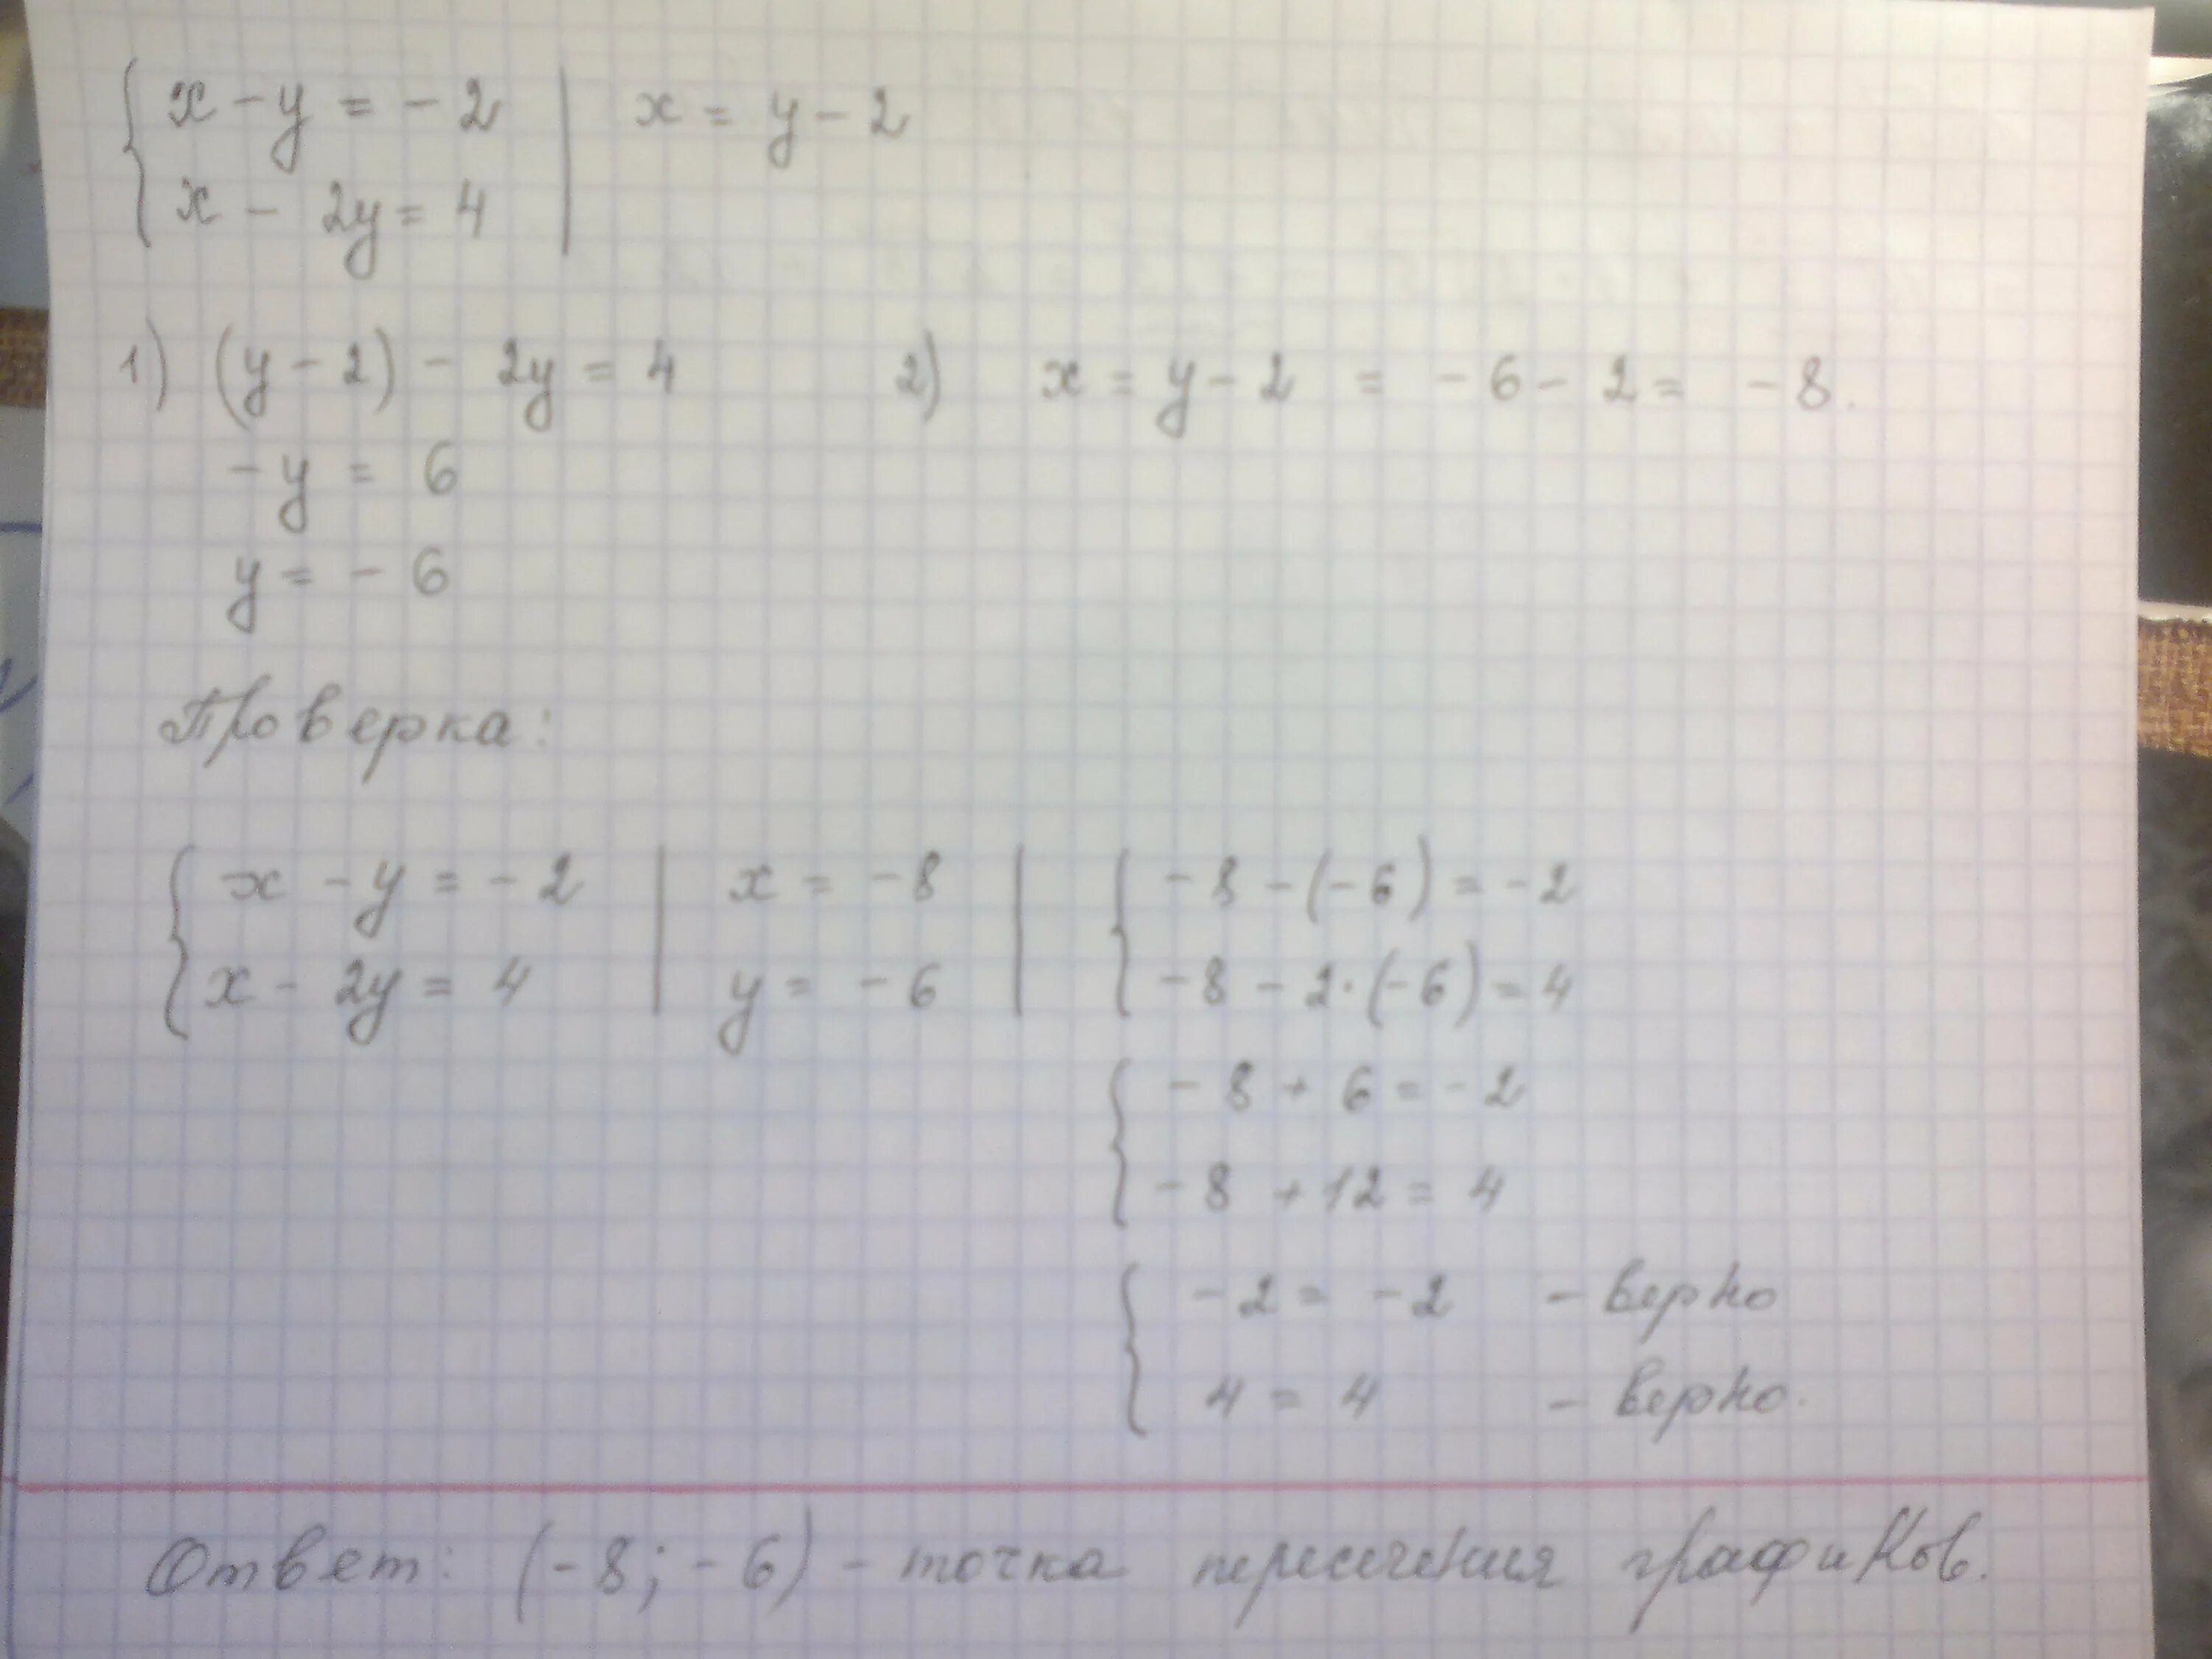 { x - y = - 2 | x = y - 2
{ x - 2y = 4 |
1) (y - 2) - 2y = 4 2) x = y - 2 = - 6 - 2 = - 8.
- y = 6
y = - 6
Проверка:
{ x - y = - 2 | x = - 8 | { - 8 - (- 6) = - 2
{ x - 2y = 4 | y = - 6 | { - 8 - 2·(- 6) = 4
{ - 8 + 6 = - 2
{ - 8 + 12 = 4
{ - 2 = - 2 - верно
{ 4 = 4 - верно.
Ответ: (- 8; - 6) - точка пересечения графиков.